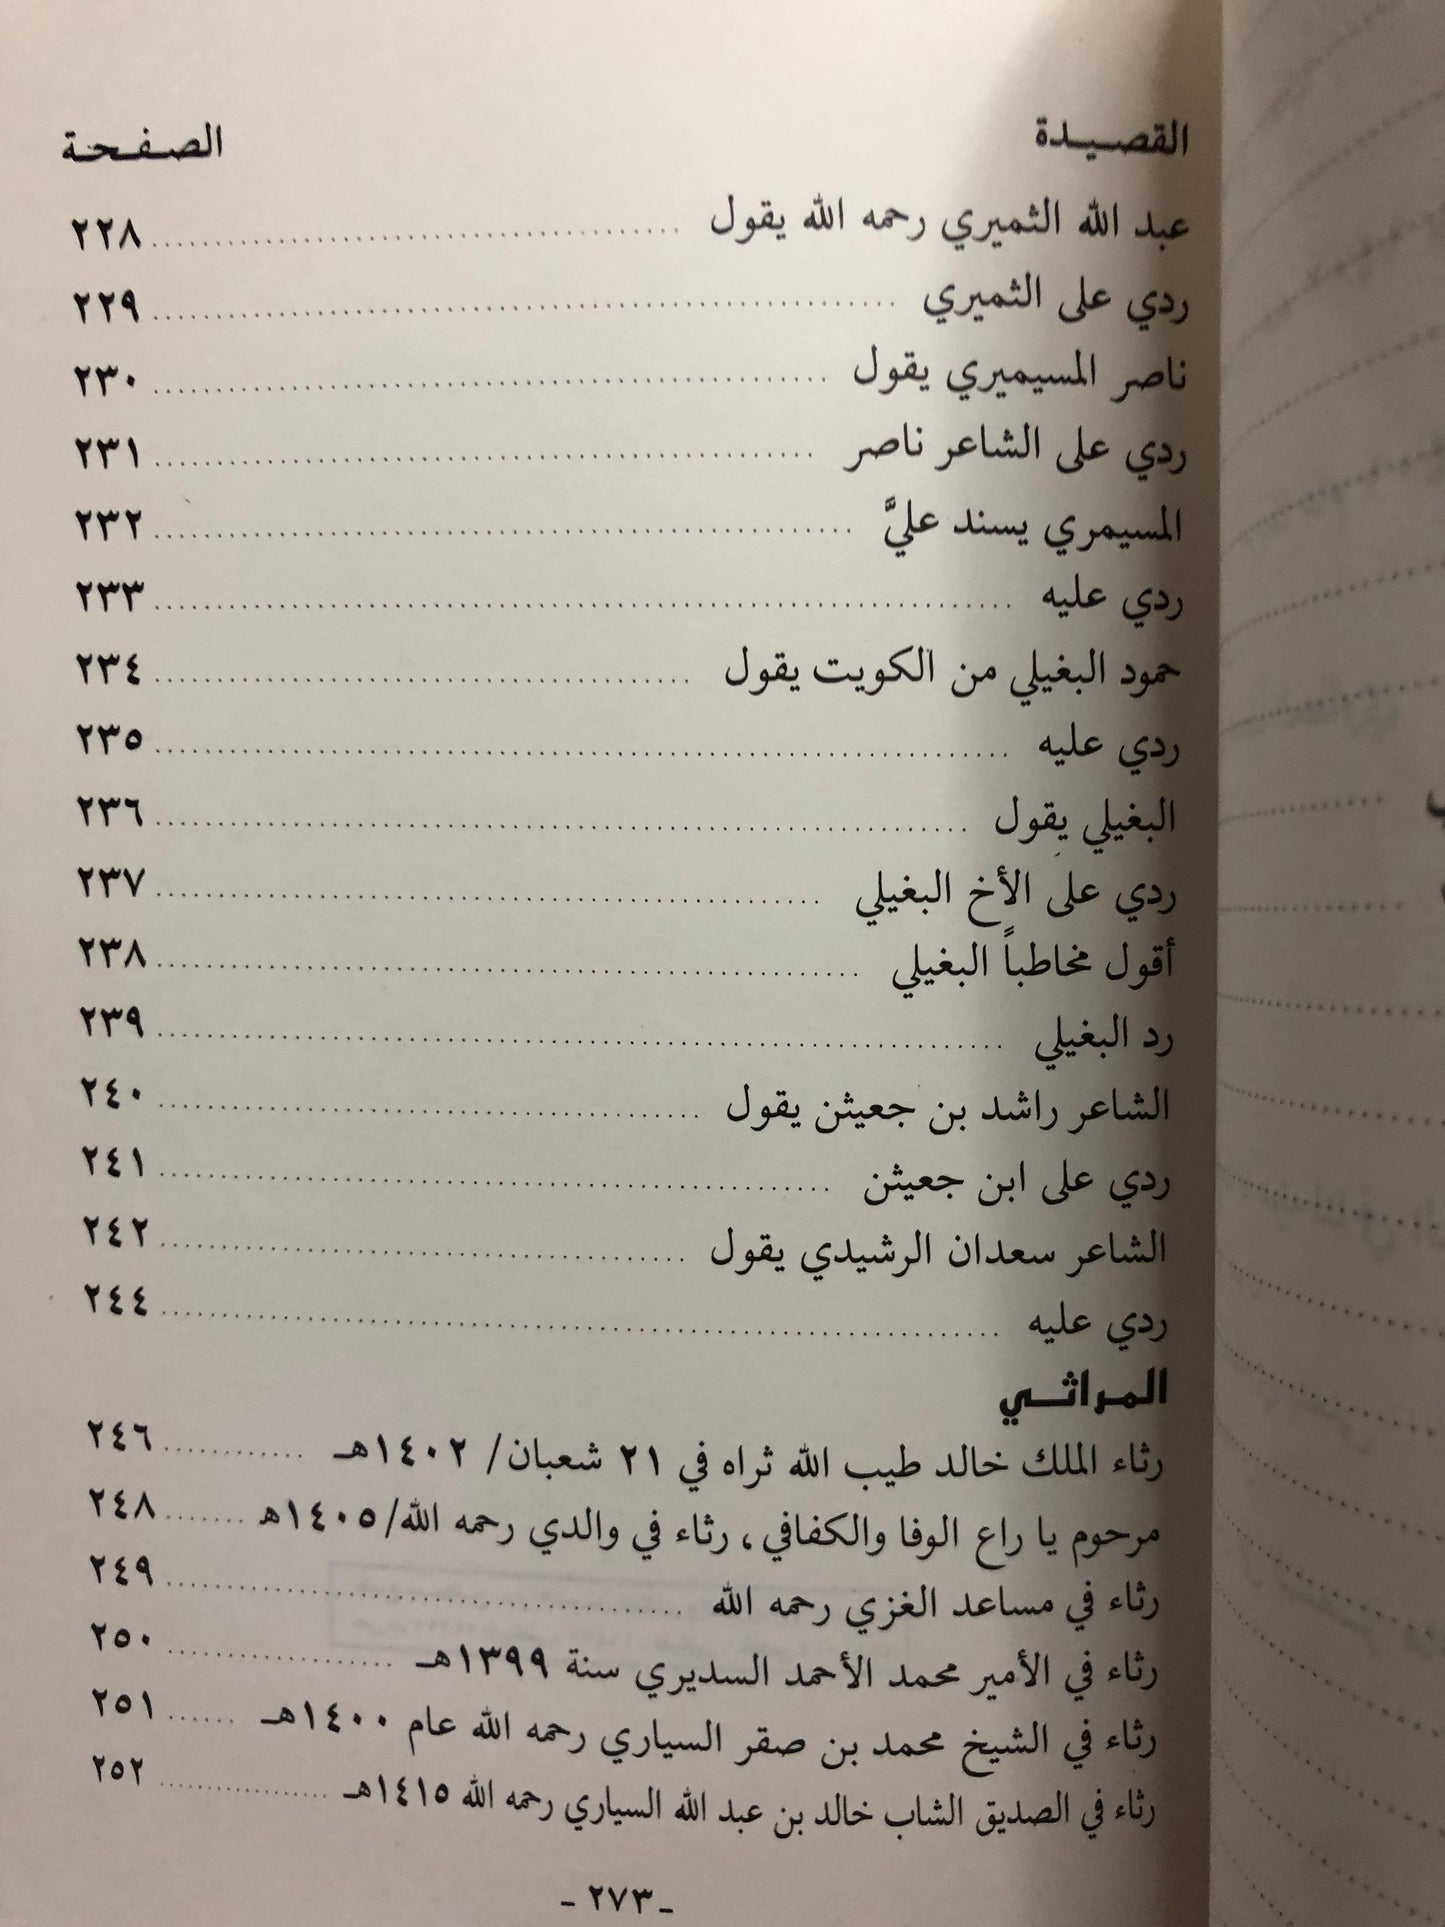 القصيدة الصفحة
عبد الله الثميري رحمه الله يقول ٢٢٨
ردي على الثميري ٢٢٩
ناصر المسيميري يقول ٢٣٠
ردي على الشاعر ناصر ٢٣١
المسيمري يسند عليَّ ٢٣٢
ردي عليه ٢٣٣
حمود البغيلي من الكويت يقول ٢٣٤
ردي عليه ٢٣٥
البغيلي يقول ٢٣٦
ردي على الأخ البغيلي ٢٣٧
أقول مخاطباً البغيلي ٢٣٨
رد البغيلي ٢٣٩
الشاعر راشد بن جعيثن يقول ٢٤٠
ردي على ابن جعيثن ٢٤١
الشاعر سعدان الرشيدي يقول ٢٤٢
ردي عليه ٢٤٤
المراثي
رثاء الملك خالد طيب الله ثراه في ٢١ شعبان/ ١٤٠٢هـ ٢٤٦
مرحوم يا راع الوفا والكفافي، رثاء في والدي رحمه الله/١٤٠٥هـ ٢٤٨
رثاء في مساعد الغزي رحمه الله ٢٤٩
رثاء في الأمير محمد الأحمد السديري سنة ١٣٩٩هـ ٢٥٠
رثاء في الشيخ محمد بن صقر السياري رحمه الله عام ١٤٠٠هـ ٢٥١
رثاء في الصديق الشاب خالد بن عبد الله السياري رحمه الله ١٤١٥هـ ٢٥٢
- ٢٧٣ -